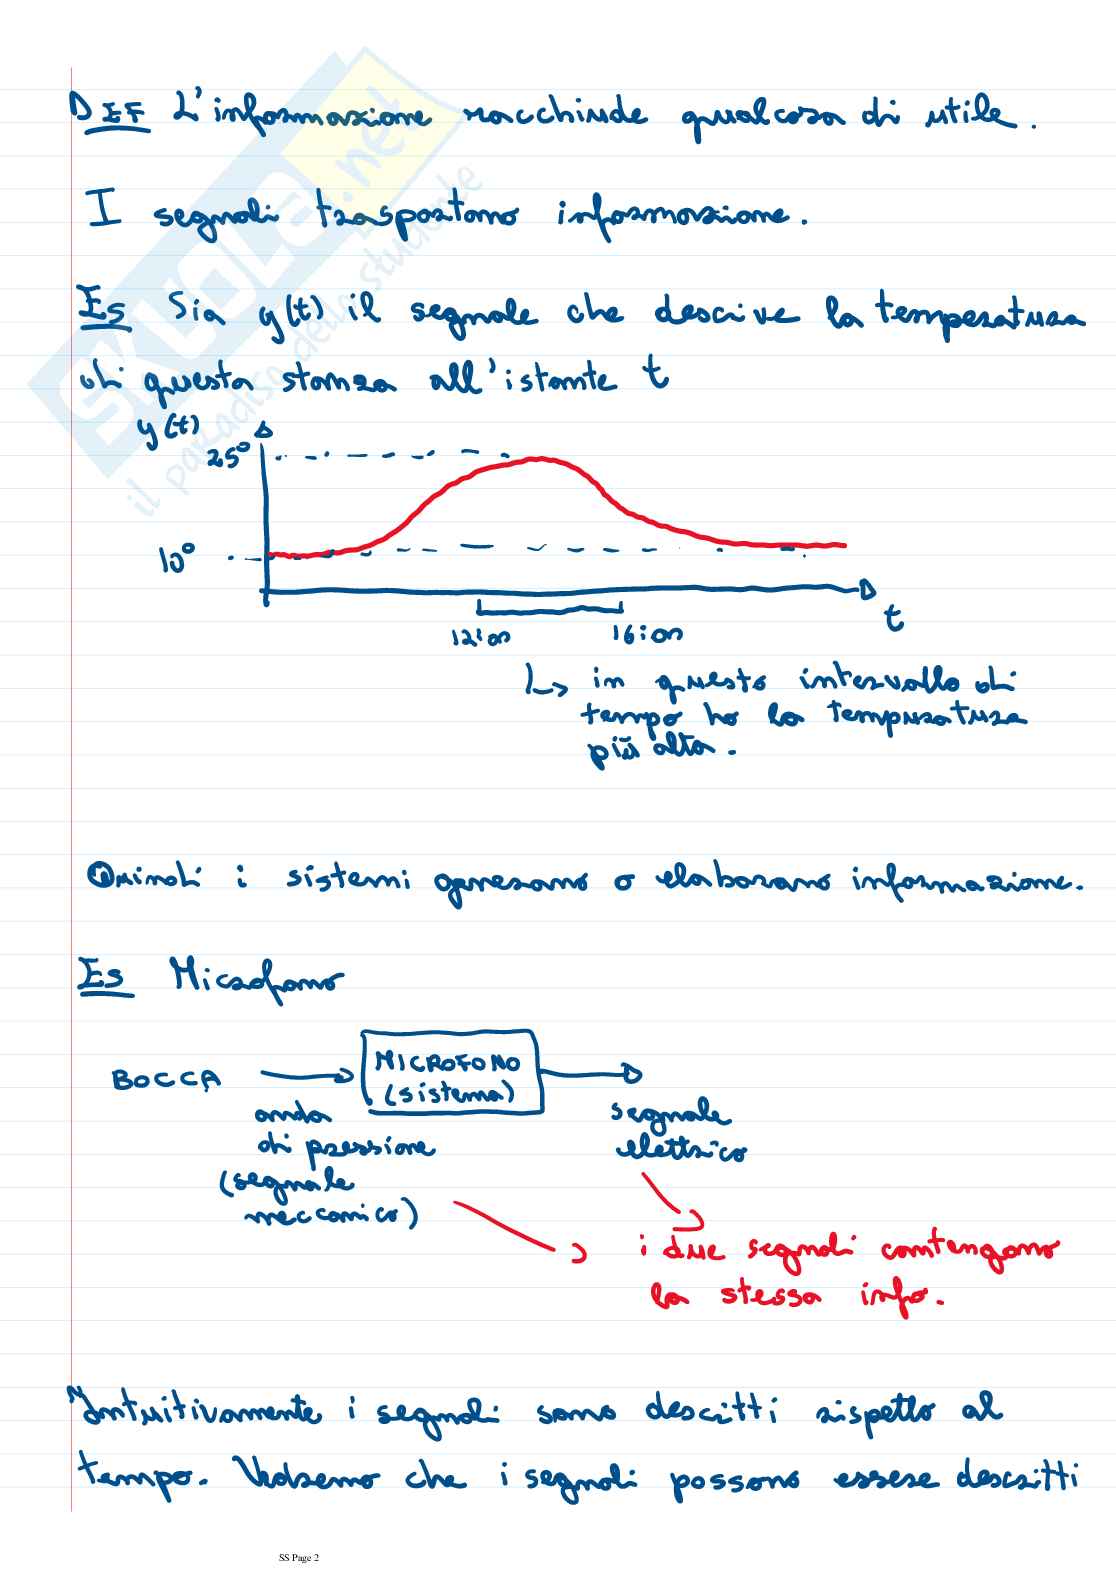 DEF L'informazione racchiude qualcosa di utile.
I segnali trasportano informazione.
Es Sia y(t) il segnale che descive la temperatura
di questa stanza all'istante t
y(t)
25°
10°
t
12:00
16:00
↳ in questo intervallo di
tempo ho la temperatura
più alta.
Quindi i sistemi generano o elaborano informazione.
Es Microfono
BOCCA
MICROFONO
(sistema)
onda
di pressione
(segnale
meccanico)
segnale
elettrico
i due segnali contengono
la stessa info.
Intuitivamente i segnali sono descritti rispetto al
tempo. Vedremo che i segnali possono essere descritti
SS Page 2
SKUOLA.net
il paradiso dello studente